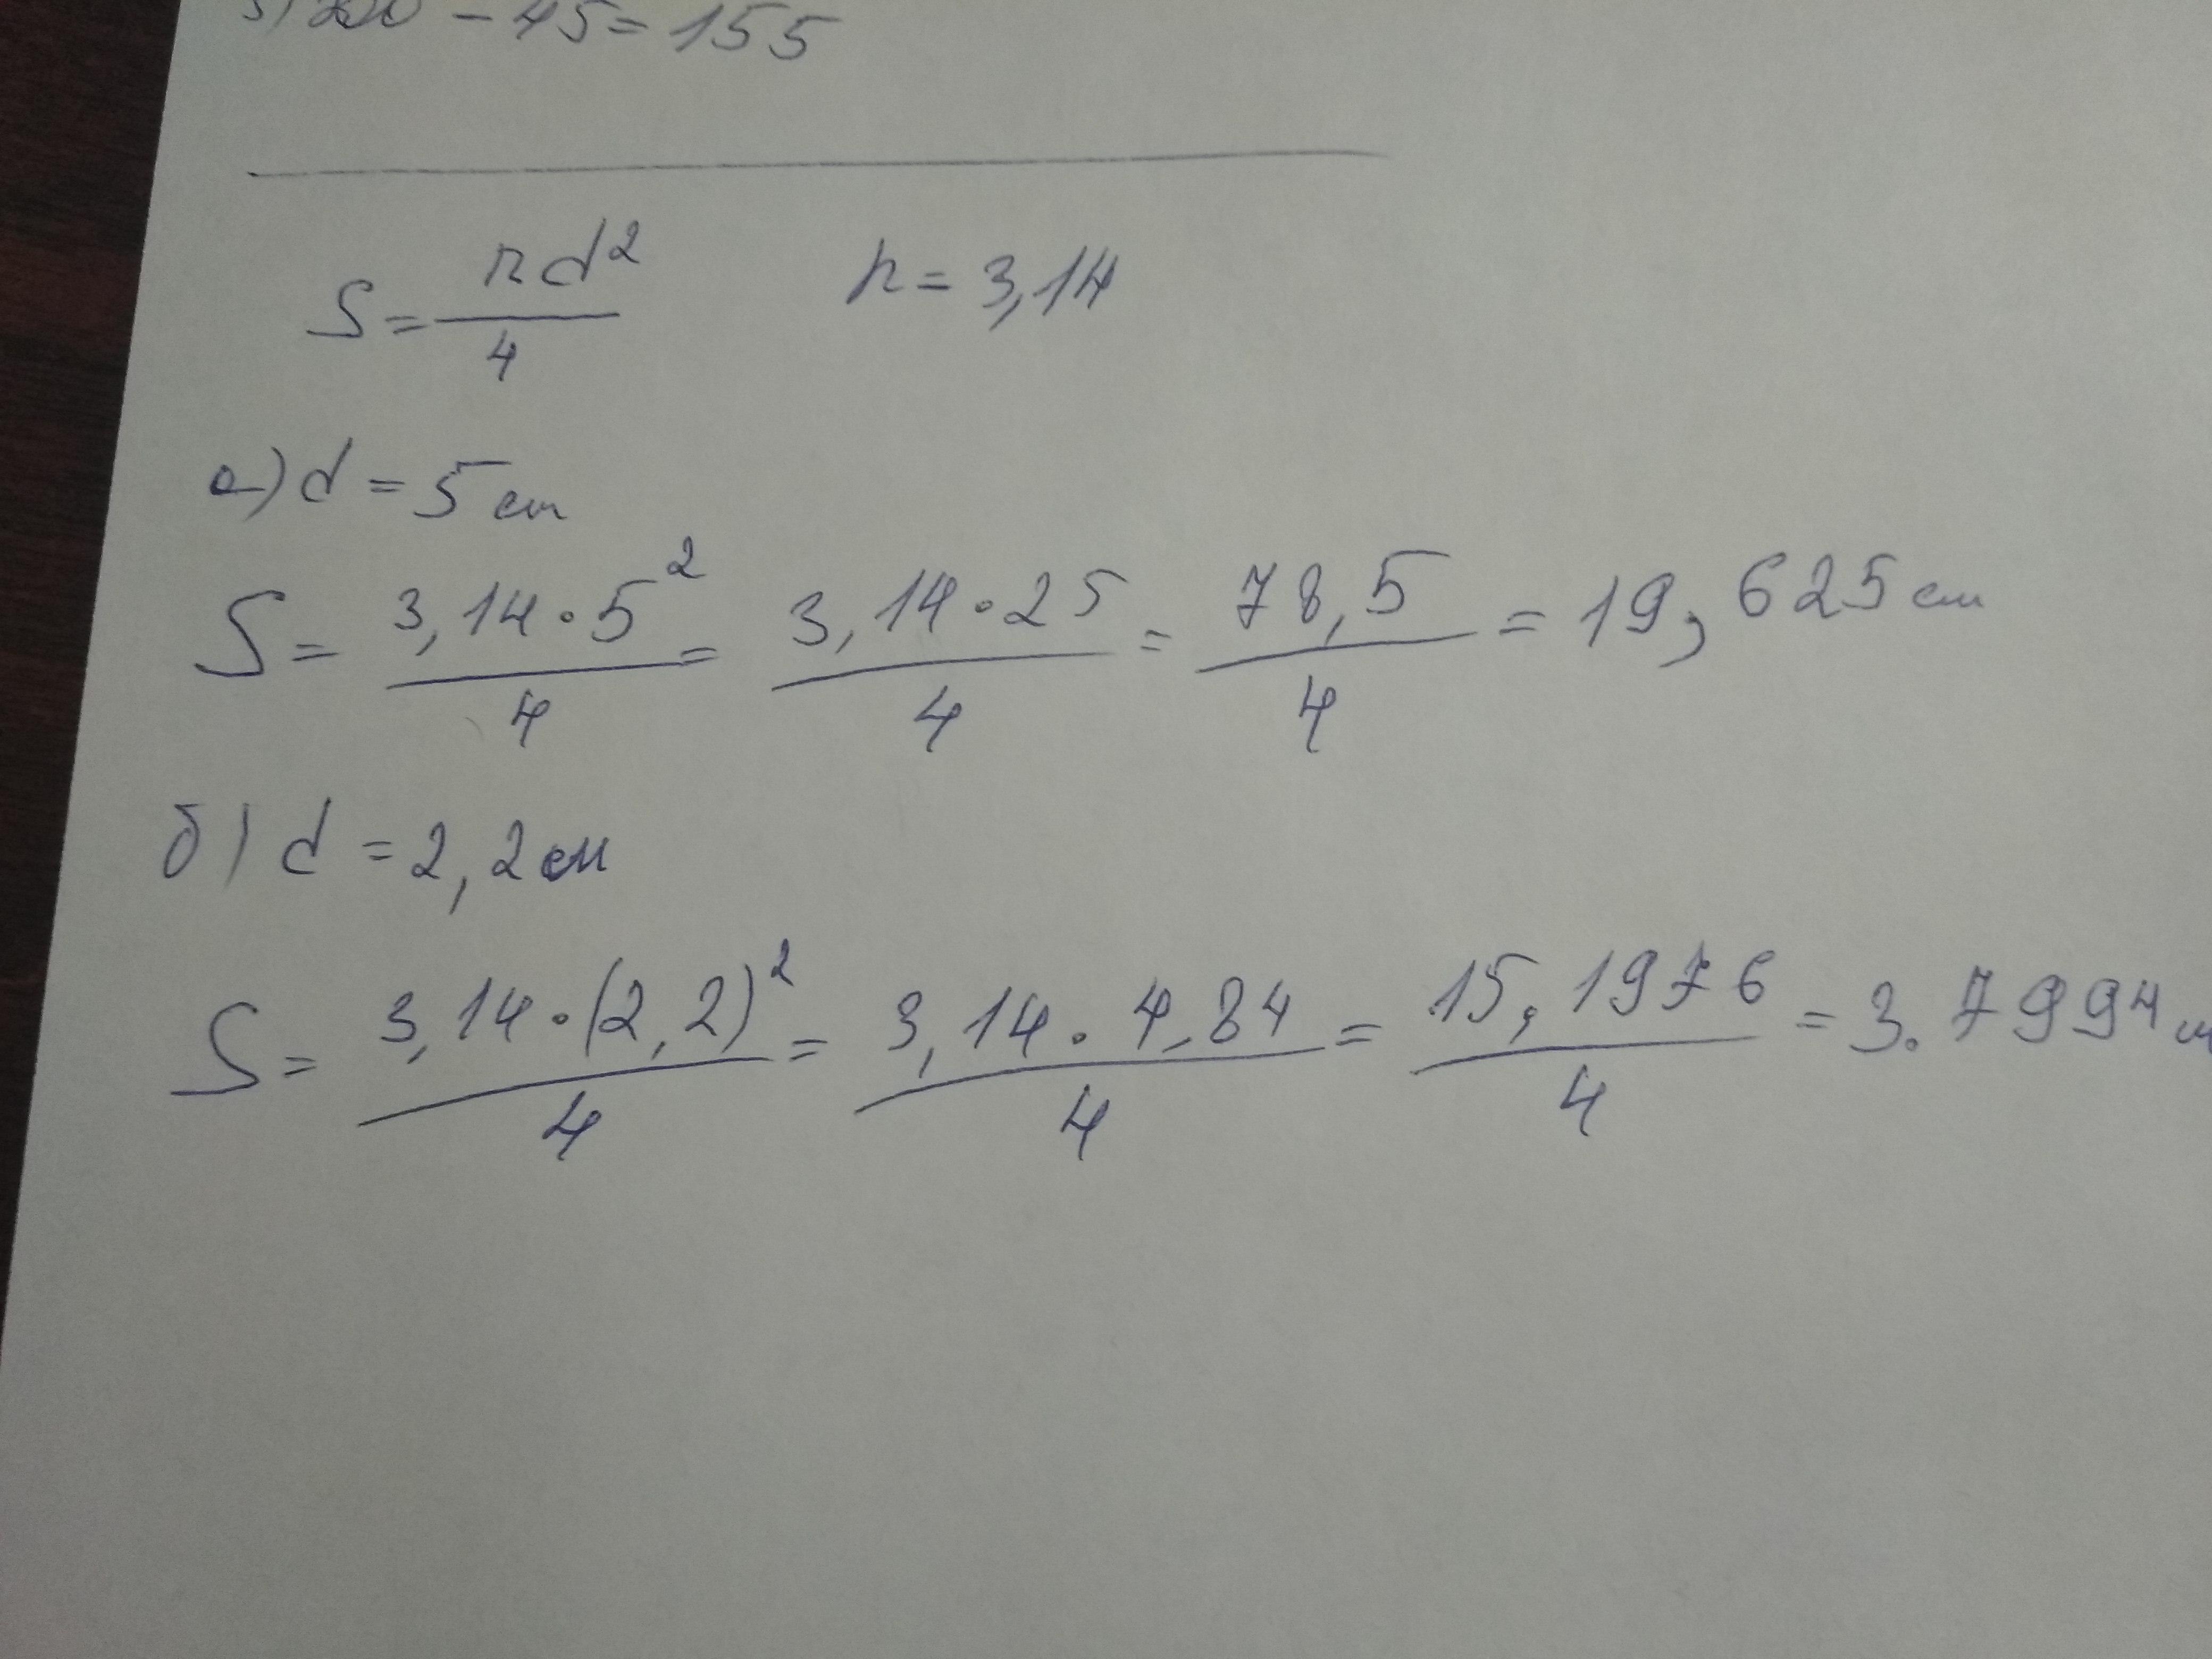 200 - 45 = 155
S = πd²/4 π = 3,14
а) d = 5 см
S = 3,14·5²/4 = 3,14·25/4 = 78,5/4 = 19,625 см
б) d = 2,2 см
S = 3,14·(2,2)²/4 = 3,14·4,84/4 = 15,1976/4 = 3.7994